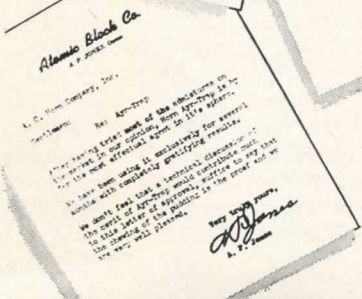 Atomic Block Co.
A. P. JONES, Owner
A. C. Horn Company, Inc.
Gentlemen:
Re: Ayr-Trap
After having tried most of the admixtures on
the market in our opinion, Horn Ayr-Trap is by
far the most effectual agent in it's sphere.
We have been using it exclusively for several
months with completely gratifying results.
We don't feel that a technical discussion of
the merit of Ayr-Trap would contribute much
to this letter of approval, suffice to say that
the chewing of the pudding is the proof and we
are very well pleased.
Very truly yours,
A. P. Jones
A. P. Jones